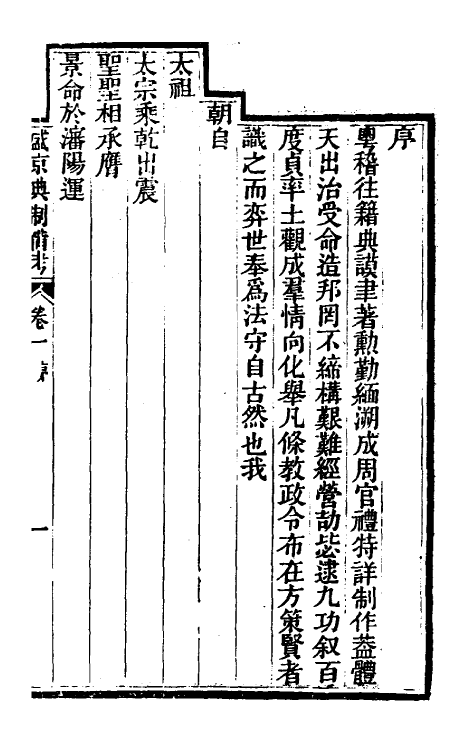 序
粵稽往籍典謨聿著勳勤緬溯成周官禮特詳制作葢體
天出治受命造邦罔不締構艱難經營劼毖逮九功叙百
度貞率土觀成羣情向化舉凡條教政令布在方策賢者
識之而弈世奉爲法守自古然也我
朝自
太祖
太宗乘乾出震
聖聖相承膺
景命於瀋陽運
盛京典制備考 卷一 序 一